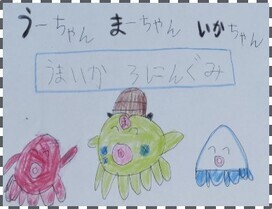 うーちゃん まーちゃん いかちゃん
うまいか 3にんぐみ